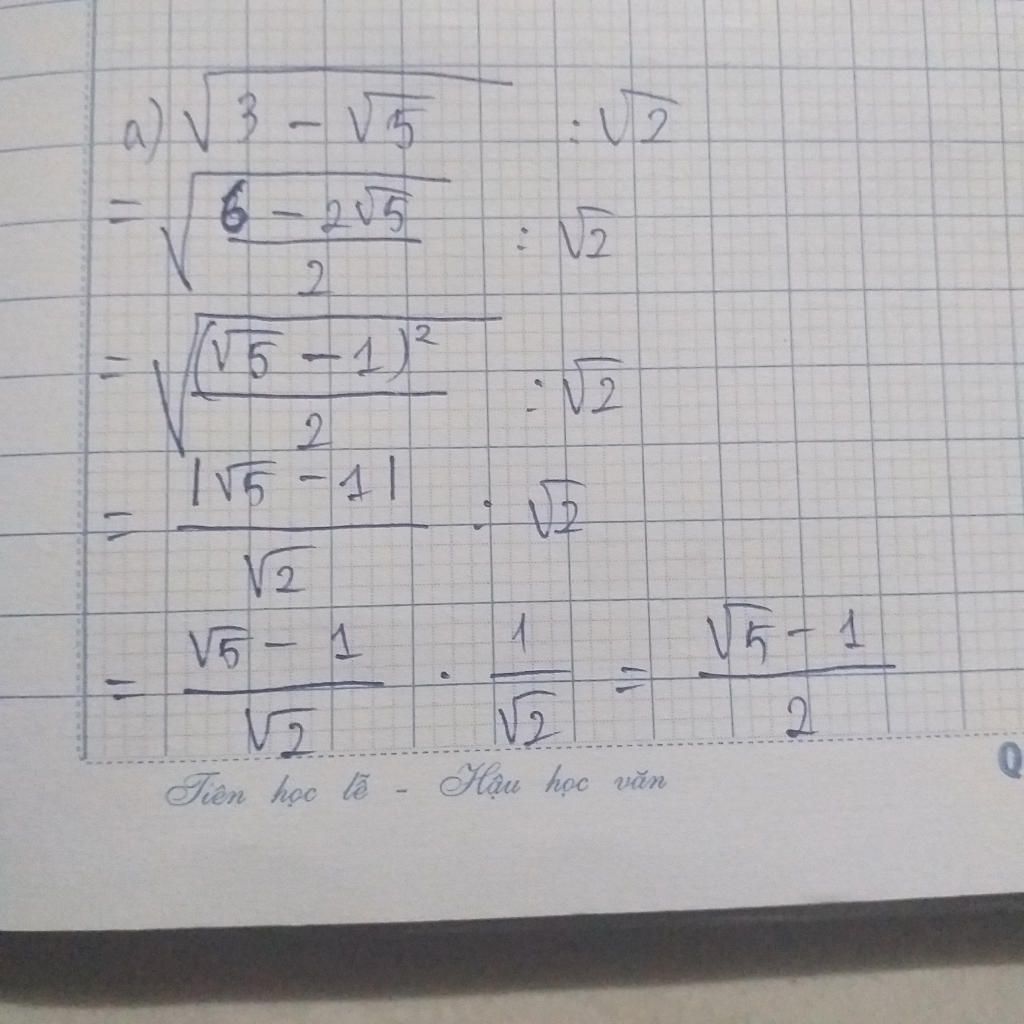 a) √(3 - √5) : √2
= √((6 - 2√5)/2) : √2
= √((√5 - 1)²/2) : √2
= |√5 - 1|/√2 : √2
= (√5 - 1)/√2 · 1/√2 = (√5 - 1)/2
Tiên học lễ - Hậu học văn
Q